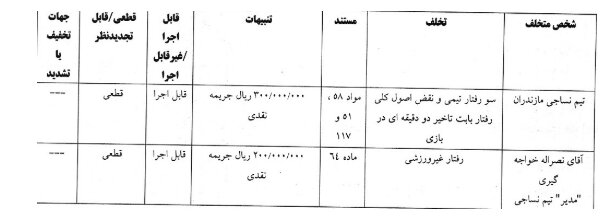 شخص متخلف	تخلف	مستند	تنبیهات	قابل اجرا /غیرقابل اجرا	قطعی/قابل تجدیدنظر	جهات تخفیف یا تشدید
تیم نساجی مازندران	سو رفتار تیمی و نقض اصول کلی رفتار بابت تاخیر دو دقیقه ای در بازی	مواد ۵۸ ، ۵۱ و ۱۱۷	۳۰۰/۰۰۰/۰۰۰ ریال جریمه نقدی	قابل اجرا	قطعی	---
آقای نصراله خواجه گیری "مدیر" تیم نساجی	رفتار غیرورزشی	ماده ٦٤	۲۰۰/۰۰۰/۰۰۰ ریال جریمه نقدی	قابل اجرا	قطعی	---